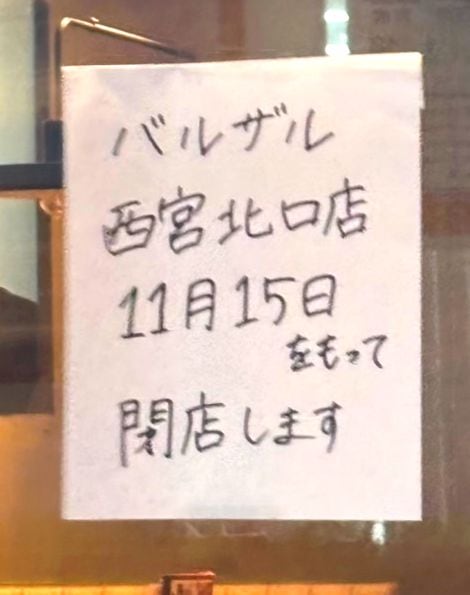 バルザル
西宮北口店
11月15日
をもって
閉店します